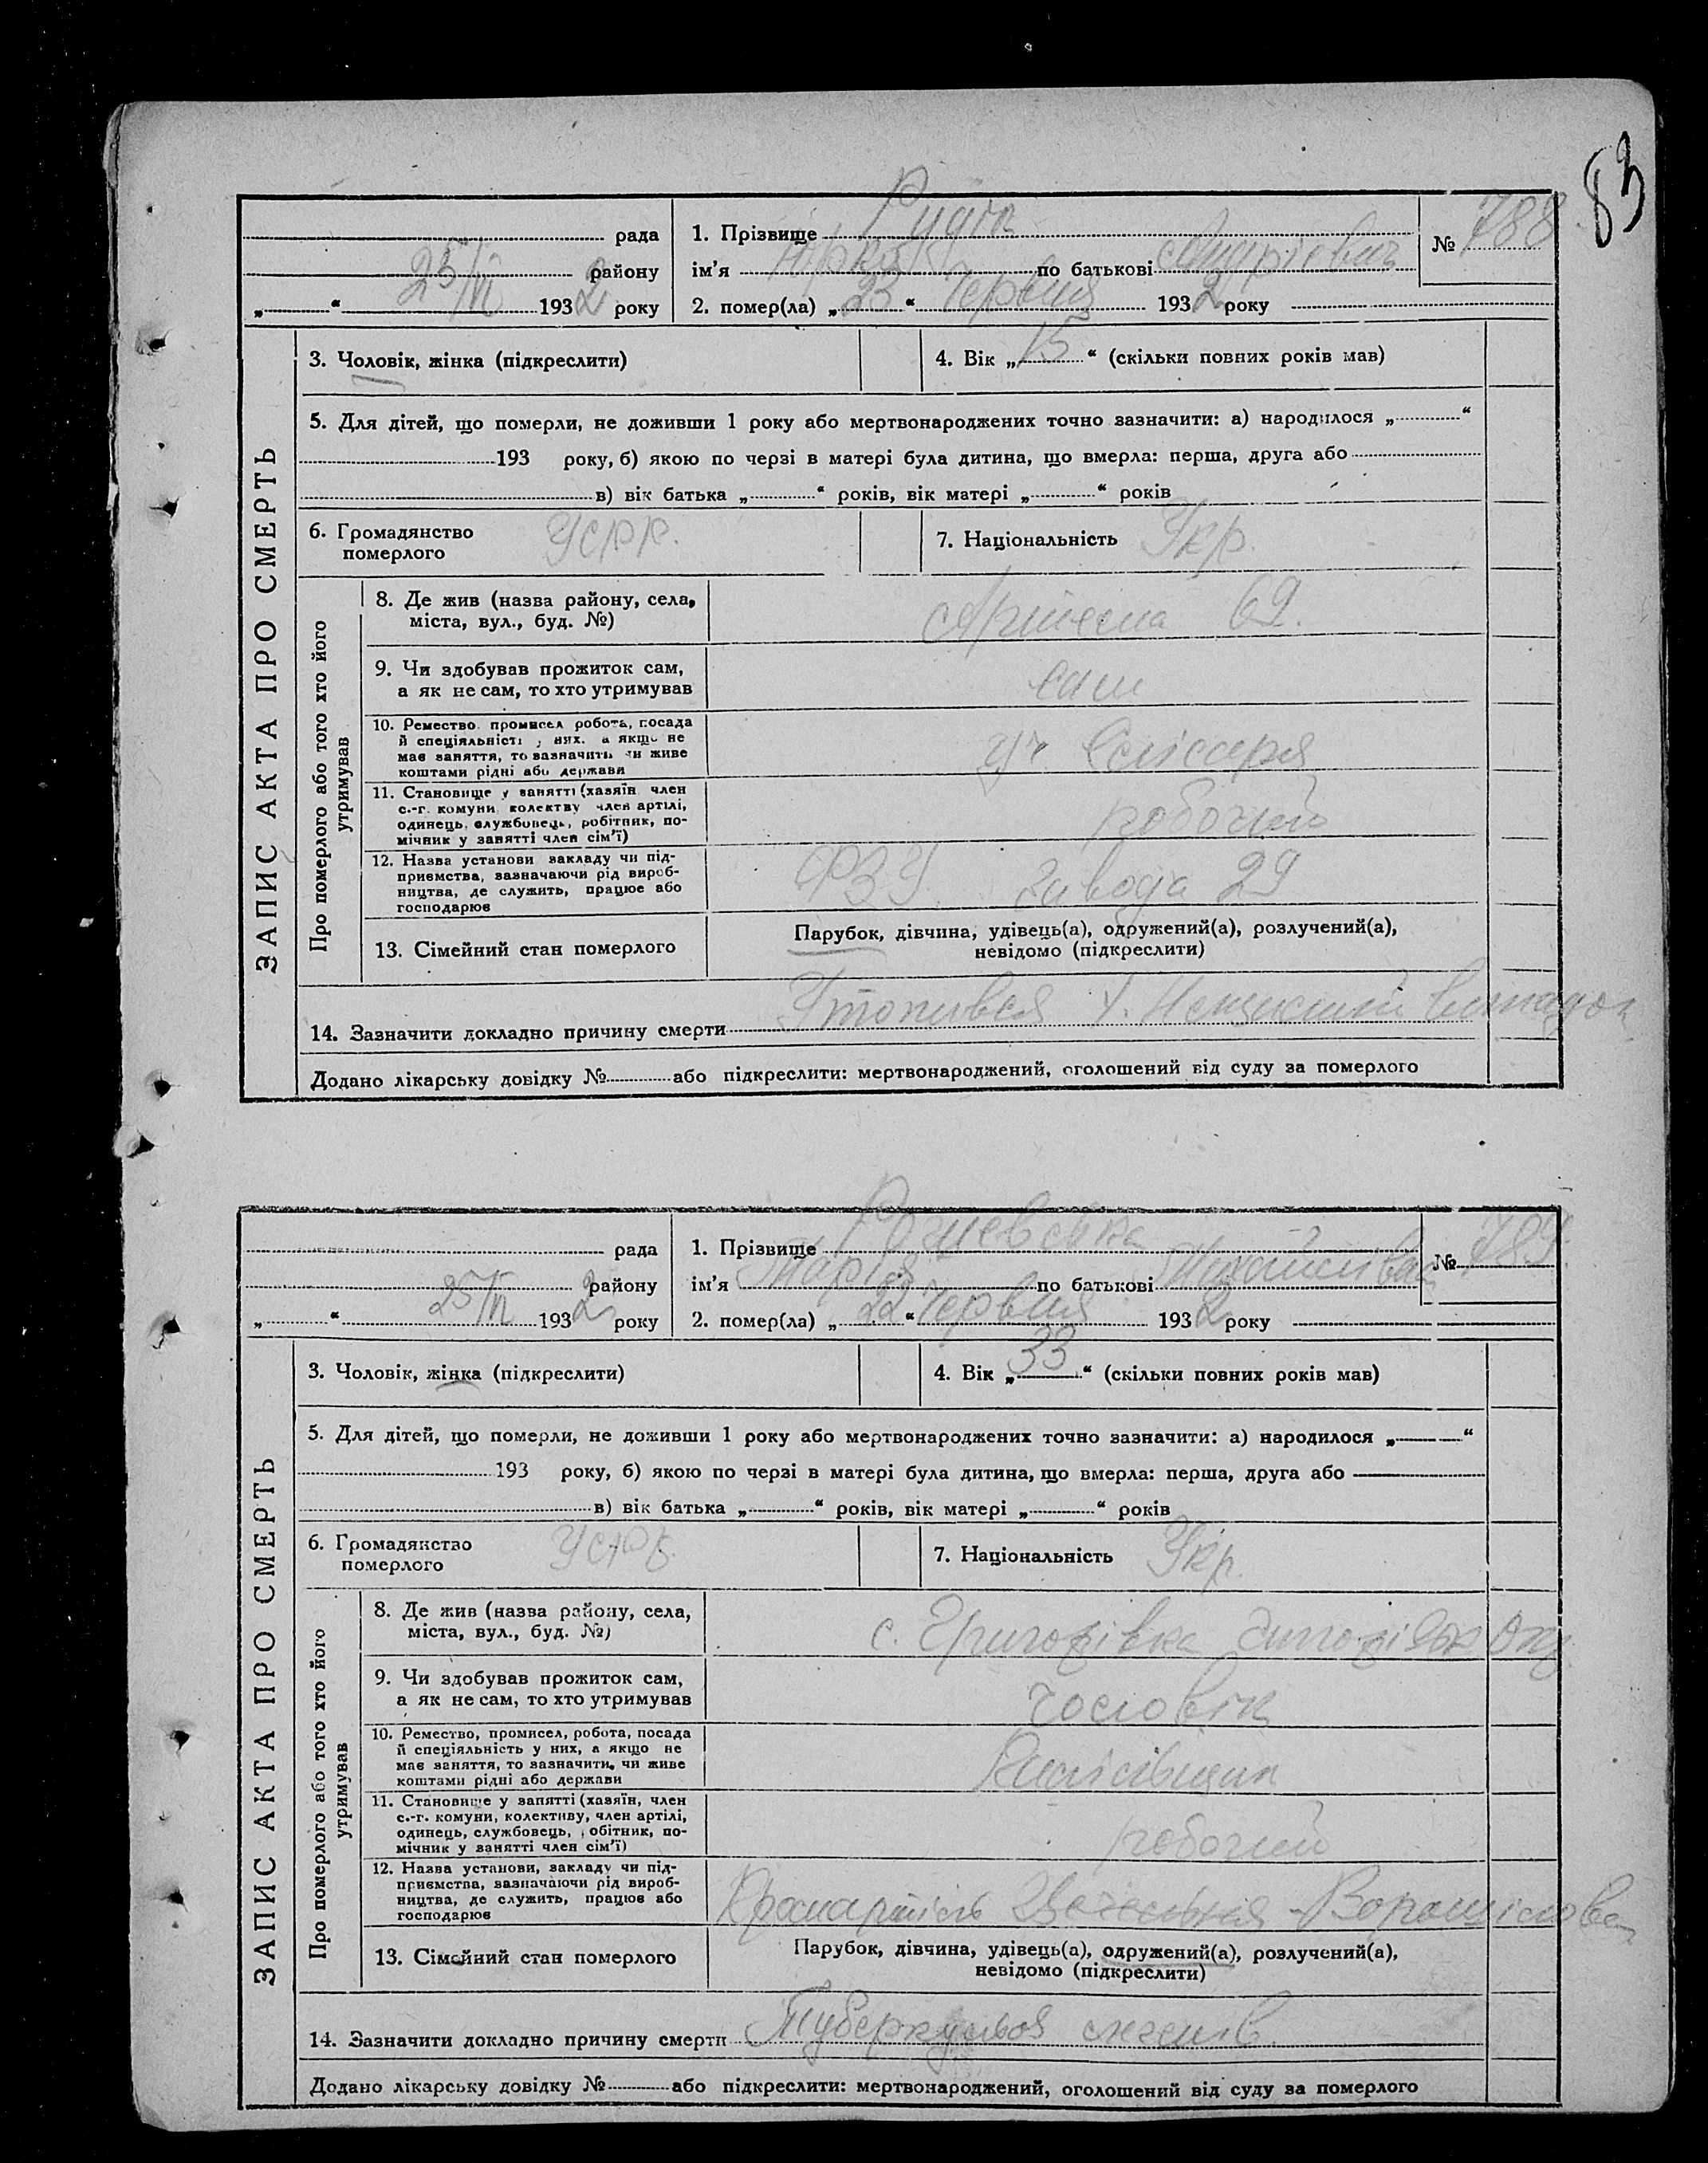 83
рада
району
25/VI 1932 року
1. Прізвище
ім’я по батькові Андрієвич
2. помер(ла) „23“ Червня 1932 року
№ 788
ЗАПИС АКТА ПРО СМЕРТЬ
3. Чоловік, жінка (підкреслити)
4. Вік „15“ (скільки повних років мав)
5. Для дітей, що померли, не доживши 1 року або мертвонароджених точно зазначити: а) народилося „ “
193 року, б) якою по черзі в матері була дитина, що вмерла: перша, друга або
в) вік батька „ “ років, вік матері „ “ років
6. Громадянство
померлого
УСРР.
7. Національність Укр.
Про померлого або того хто його
утримував
8. Де жив (назва району, села,
міста, вул., буд. №)
Артема 69.
9. Чи здобував прожиток сам,
а як не сам, то хто утримував
сам
10. Ремество, промисел робота, посада
й спеціяльність у них, а якщо не
має заняття, то зазначить чи живе
коштами рідні або держави
уч Слісаря
11. Становище у занятті (хазяїн член
с.-г. комуни, колективу член артілі,
одинець, службовець, робітник, по-
мічник у занятті член сім’ї)
робочий
12. Назва установи закладу чи під-
приємства, зазначаючи рід вироб-
ництва, де служить, працює або
господарює
ФЗУ завода 29
13. Сімейний стан померлого
Парубок, дівчина, удівець(а), одружений(а), розлучений(а),
невідомо (підкреслити)
14. Зазначити докладно причину смерти Утопився випадок
Додано лікарську довідку № або підкреслити: мертвонароджений, оголошений від суду за померлого
рада
району
25/VI 1932 року
1. Прізвище
ім’я Марія по батькові Михайлівна
2. помер(ла) „22“ Червня 1932 року
№ 789
ЗАПИС АКТА ПРО СМЕРТЬ
3. Чоловік, жінка (підкреслити)
4. Вік „33“ (скільки повних років мав)
5. Для дітей, що померли, не доживши 1 року або мертвонароджених точно зазначити: а) народилося „ “
193 року, б) якою по черзі в матері була дитина, що вмерла: перша, друга або
в) вік батька „ “ років, вік матері „ “ років
6. Громадянство
померлого
УСРР.
7. Національність Укр.
Про померлого або того хто його
утримував
8. Де жив (назва району, села,
міста, вул., буд. №)
с.
9. Чи здобував прожиток сам,
а як не сам, то хто утримував
чоловік
10. Ремество, промисел, робота, посада
й спеціяльність у них, а якщо не
має заняття, то зазначити, чи живе
коштами рідні або держави
11. Становище у занятті (хазяїн, член
с.-г. комуни, колективу, член артілі,
одинець, службовець, робітник, по-
мічник у занятті член сім’ї)
робочий
12. Назва установи, закладу чи під-
приємства, зазначаючи рід вироб-
ництва, де служить, працює або
господарює
13. Сімейний стан померлого
Парубок, дівчина, удівець(а), одружений(а), розлучений(а),
невідомо (підкреслити)
14. Зазначити докладно причину смерти Туберкульоз легенів.
Додано лікарську довідку № або підкреслити: мертвонароджений, оголошений від суду за померлого